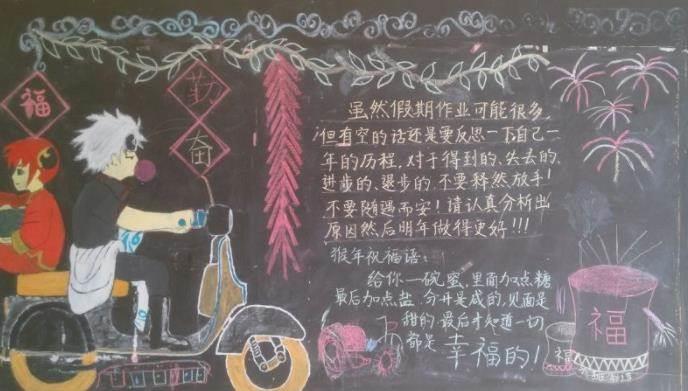 福
勤
奋
虽然假期作业可能很多,
但有空的话还是要反思一下自己一
年的历程,对于得到的、失去的、
进步的、退步的,不要释然放手!
不要随遇而安!请认真分析出
原因然后明年做得更好!!!
猴年祝福语:
给你一碗蜜,里面加点糖
最后加点盐,分开是咸的,见面是
甜的,最后才知道一切
都是幸福的!
福
福